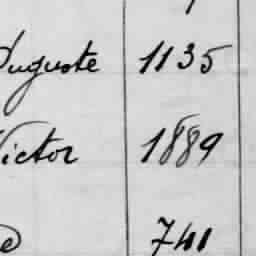 Auguste 1135
Victor 1889
e 741